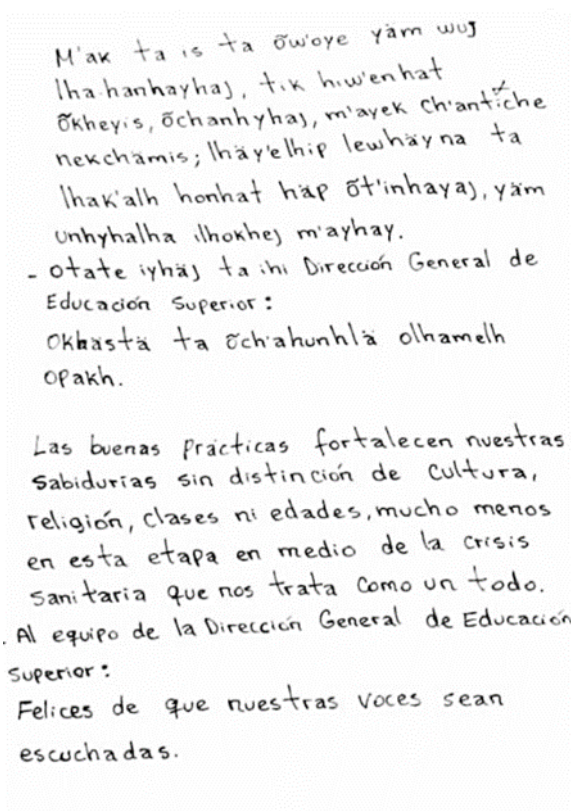 M'ak ta is ta õw'oye yäm wuj
lha.hanhayhaj, tik hiw'enhat
õkheyis, õchanhyhaj, m'ayek ch'antiche
nekchämis; lhäy'elhip lewhäy na ta
lhak'alh honhat häp õt'inhayaj, yäm
unhyhalha ilhokhej m'ayhay.
- otate iyhäj ta ihi Dirección General de
Educación Superior:
Okhästä ta õch'ahunhlä olhamelh
opakh.
Las buenas prácticas fortalecen nuestras
sabidurías sin distinción de cultura,
religión, clases ni edades, mucho menos
en esta etapa en medio de la crisis
sanitaria que nos trata como un todo.
. Al equipo de la Dirección General de Educación
Superior:
Felices de que nuestras voces sean
escuchadas.